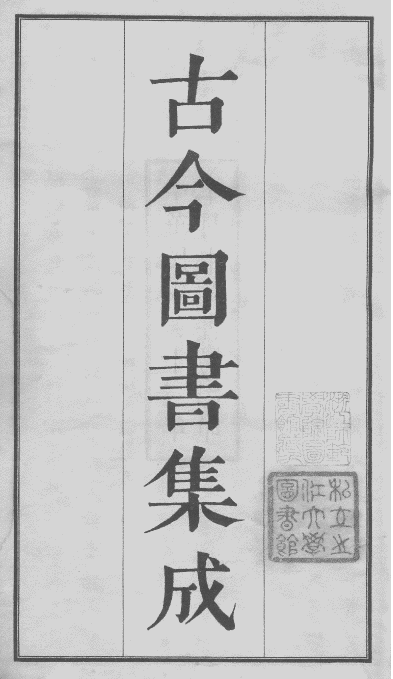 古今圖書集成
私立之
江大學
圖書館